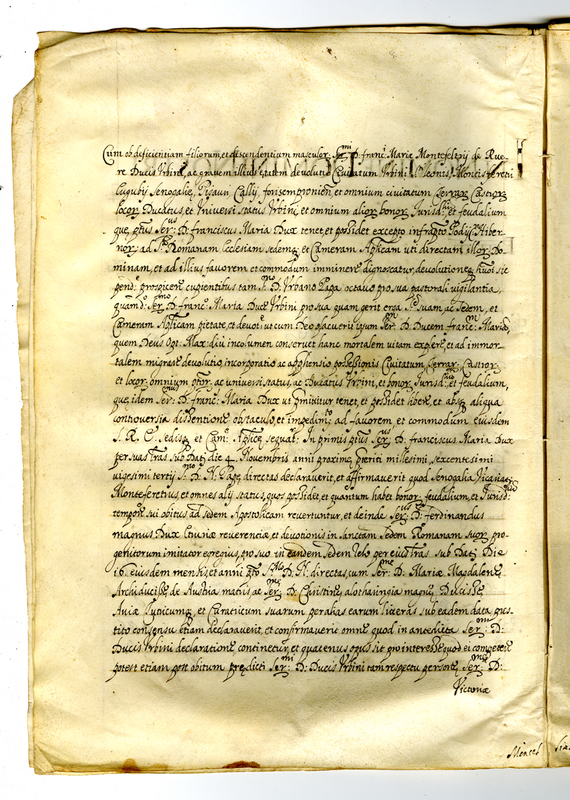 Cum ob deficientiam filiorum, et descendentium masculor. Ser.mi D. Franc. Mariæ Montefeltrij de Rue-
re Ducis Urbini, ac gravem illius ętatem devolutio Civitatum Urbini S. Leonis, Montis feretri
Eugubij Senogaliæ, Pisauri Callij, forisempronien. et omnium civitatum Terrar. Castror.
locor. Ducatus, et Universi status Urbini, et omnium alior. bonor. Jurisd. et feudalium
que, ptus Ser.us D. Franciscus Maria Dux tenet, et possidet excepto
nor. ad S. Romanam Ecclesiam sedemq. et Cameram Aplicam uti directam Do-
minam, et ad illius favorem et commodum imminere dignoscatur, devolutioneq. sic
pend. prospicere cupientibus tam S.mo D. Urbano Papa octavo pro sua pastorali vigilantia,
quam Ser.mo D. Franc. Maria Duce Urbini pro sua quam gerit erga S. Suam, ac Sedem, et
Cameram Aplicam pietate, et ut cum Deo placuerit ipsum Ser. D. Ducem Franc. Mariã,
quem Deus Opt. Max. diu incolumen conservet hanc mortalem vitam explere, et ad immor-
talem migrare devolutio, incorporatio, ac apphensio possessionis Civitatum, Terrar. Castror.
et locor. omnium ptor. ac universi status, ac Ducatus Urbini, et bonor. Jurisd. et feudalium,
que, idem Ser. D. Franc. Maria Dux ut pmittitur tenet, et possidet libere, et absq. aliqua
controversia dissentione obstaculo, et impedim.to ad favorem et commodum eiusdem
S. R. E. sedisq. et Cam. Aplicę sequat. In primis ptus Ser.us D. Franciscus Maria Dux
per suas lras sub Dat. die 4. Novembris anni proximę pteriti millesimi, sexcentesimi
vigesimi tertij S.mo D. N. Papę directas declaraverit, et affirmaverit quod Senogalia Vicariatus
Monteferetus et omnes alij status, quos possidet, et quantum habet bonor. feudalium, et Jurisd.
tempore sui obitus ad Sedem Apostolicam revertuntur, et deinde Ser.us D. Ferdinandus
magnus Dux Etruriæ reverentię, et devotionis in sanctam Sedem Romanam suor. pro-
genitorum imitator egregius, pro suo in eandem Sedem Zelo per eius lras sub Dat. Die
16. eiusdem mensis, et anni pto S.mo D. N. directas, cum Ser.me D. Mariæ Magdalene
Archiducisse de Austria matris, ac Ser. D. Christine, a lotharingia magne Ducisse
Auiæ tutricumq. et Curatricum suarum per alias earum literas sub eadem data pres-
tito consensu etiam declaraverit, et confirmaverit omne quod in antedicta Ser.mi D.
Ducis Urbini declaratione continetur, et quatenus opus sit pro interesse quod ei competere
potest etiam post obitum prędicti Ser.mi D. Ducis Urbini tam respectu personę Ser.mę D.
Victoriæ